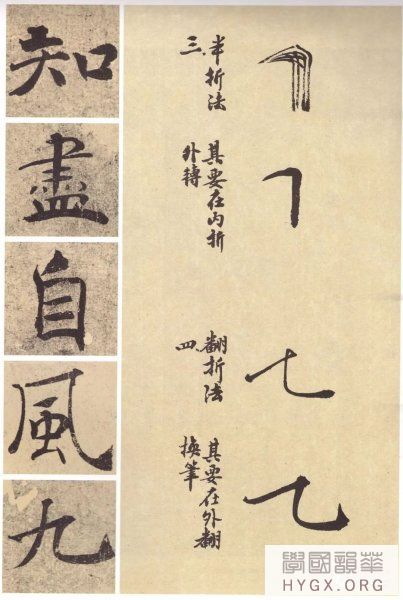 三、半折法
其要在內折
外轉
四、翻折法
其要在外翻
換筆
知
盡
自
風
九
學國韻華
HYGX.ORG